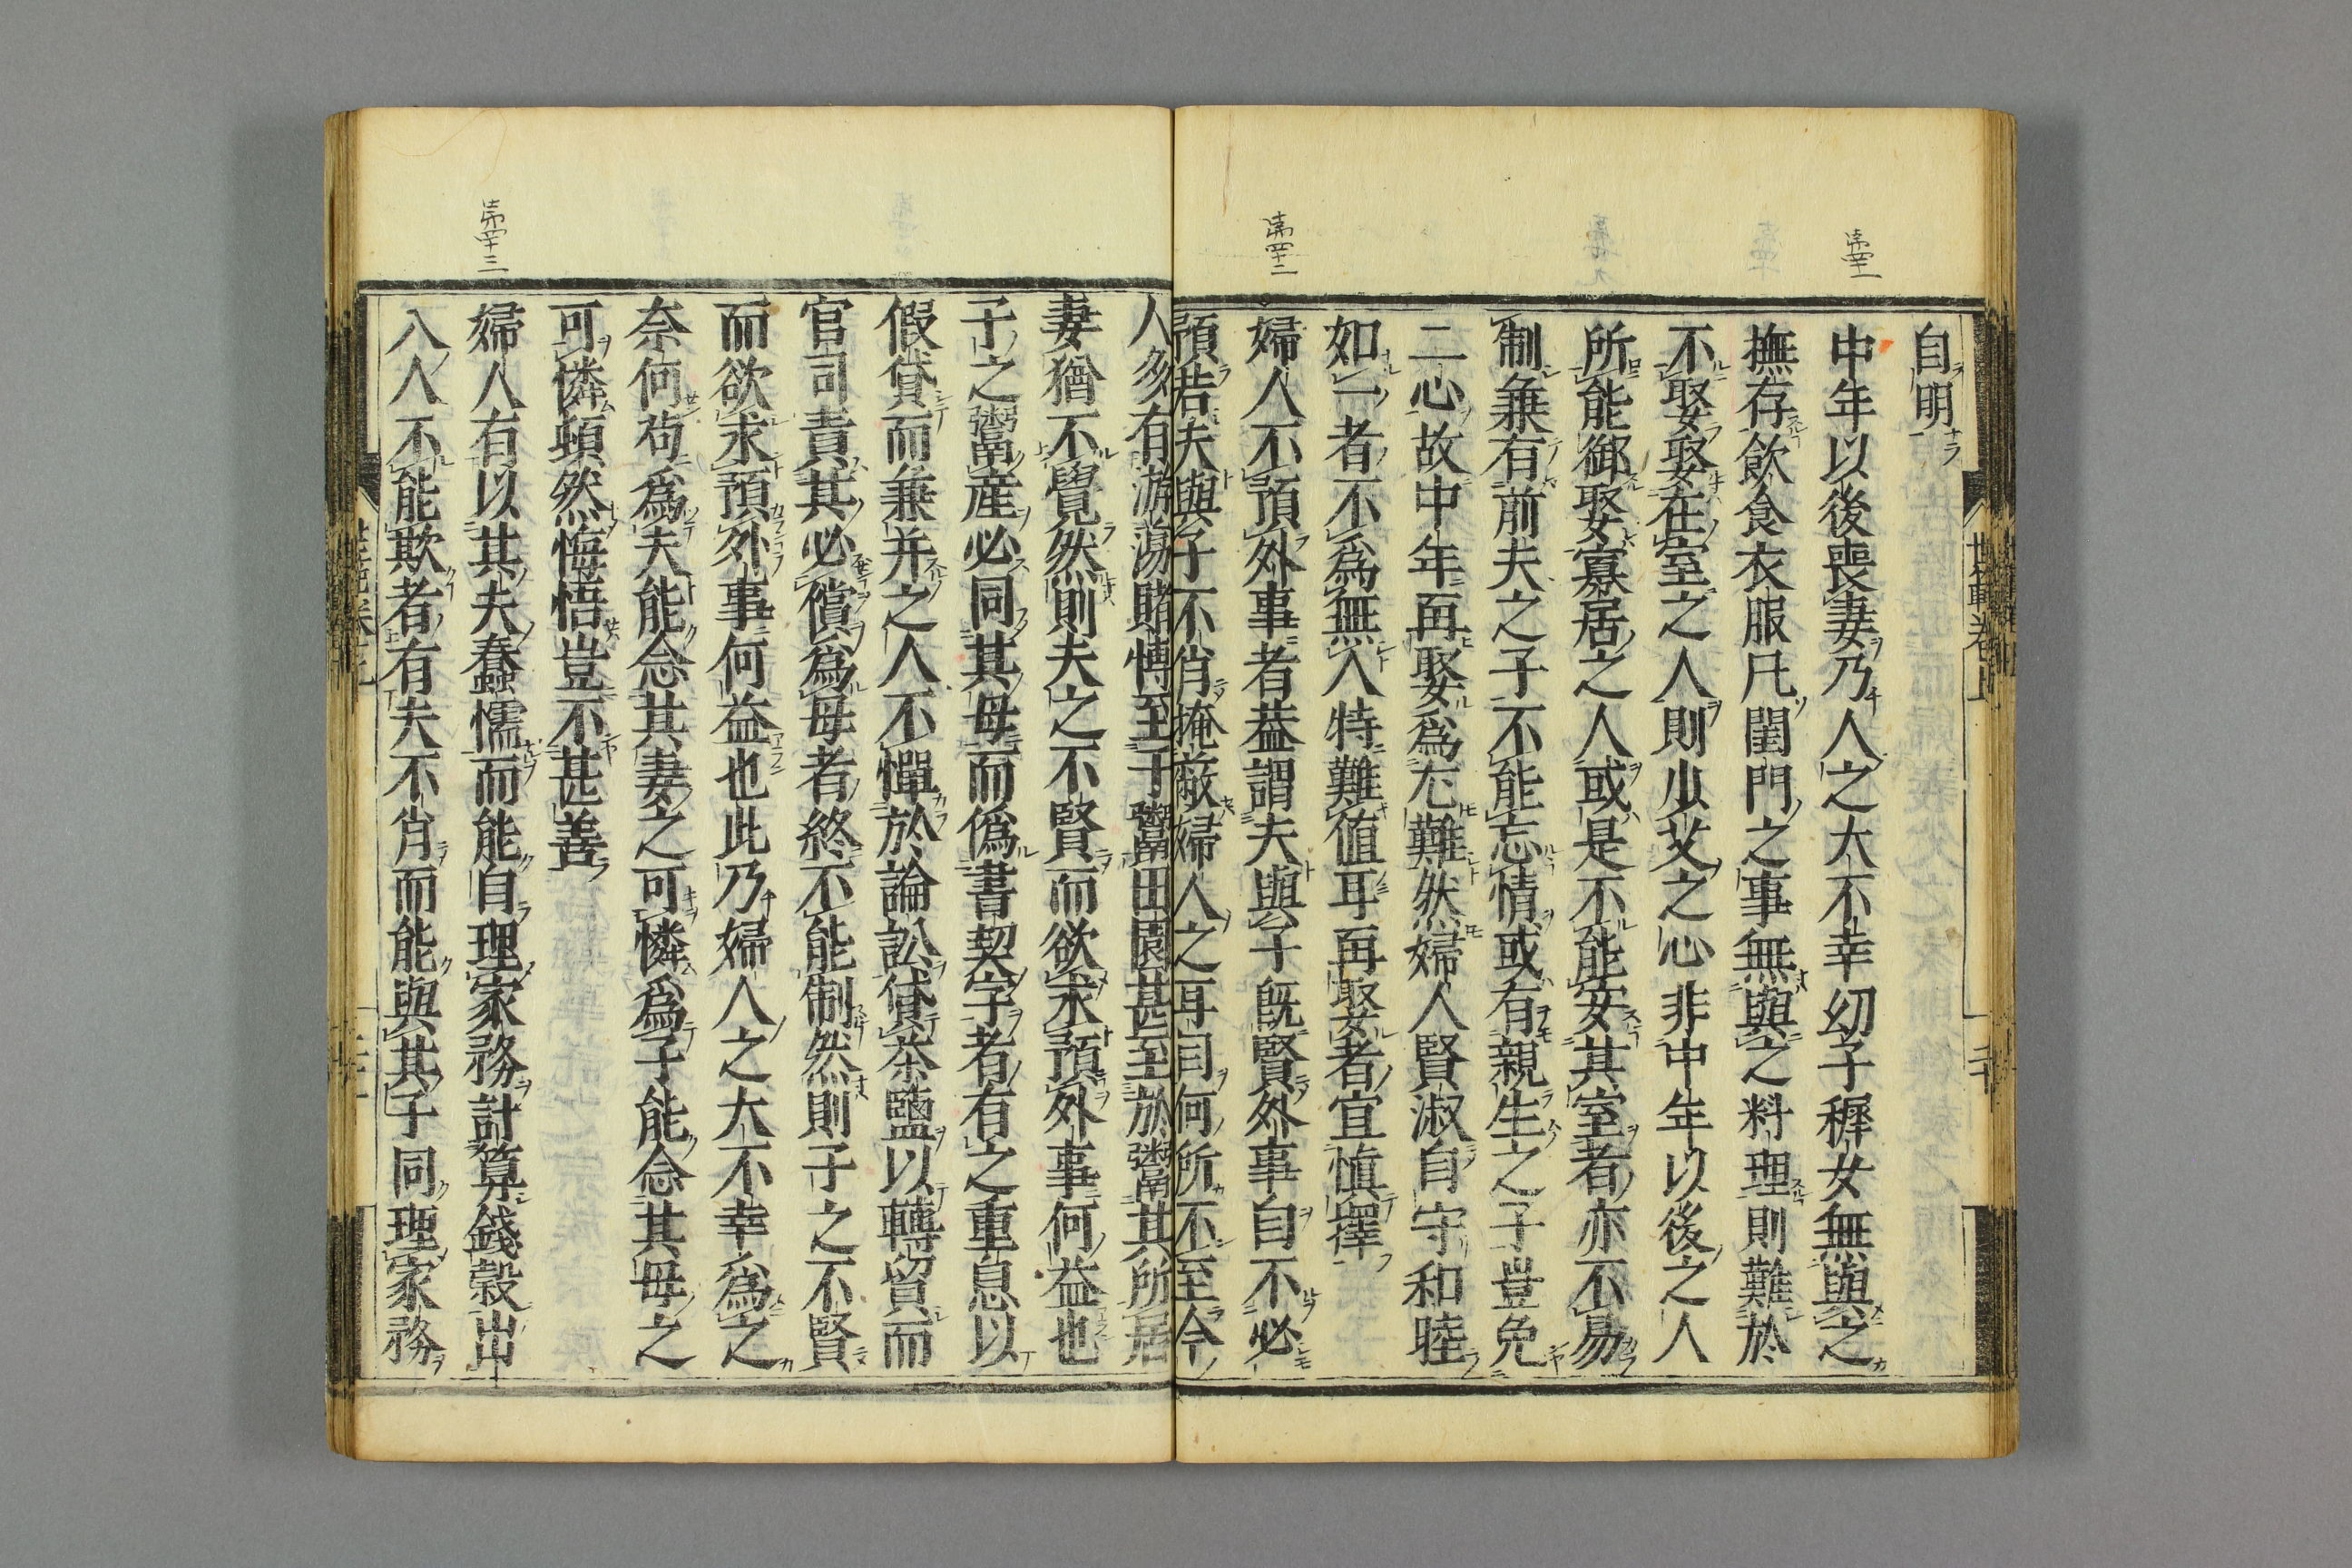 自明
中年以後喪妻乃人之大不幸幼子穉女無與之
撫存飲食衣服凡閨門之事無與之料理則難於
不娶娶在室之人則少艾之心非中年以後之人
所能御娶寡居之人或是不能安其室者亦不易
制兼有前夫之子不能忘情或有親生之子豈免
二心故中年再娶爲尤難然婦人賢淑自守和睦
如一者不爲無人特難値耳再娶者宜愼擇
婦人不預外事者葢謂夫與子既賢外事自不必
預若夫與子不肖掩蔽婦人之耳目何所不至今
人多有游蕩賭博至于鬻田園甚至於鬻其所居
妻猶不覺然則夫之不賢而欲求預外事何益也
子之鬻産必同其母而僞書契字者有之重息以
假貸而兼并之人不憚於論訟貸茶鹽以轉貿而
官司責其必償爲母者終不能制然則子之不賢
而欲求預外事何益也此乃婦人之大不幸爲之
奈何苟爲夫能念其妻之可憐爲子能念其母之
可憐頓然悔悟豈不甚善
婦人有以其夫蠢懦而能自理家務計算錢穀出
入人不能欺者有夫不肖而能與其子同理家務
世範卷上
二十
第四十一
第四十二
第四十三